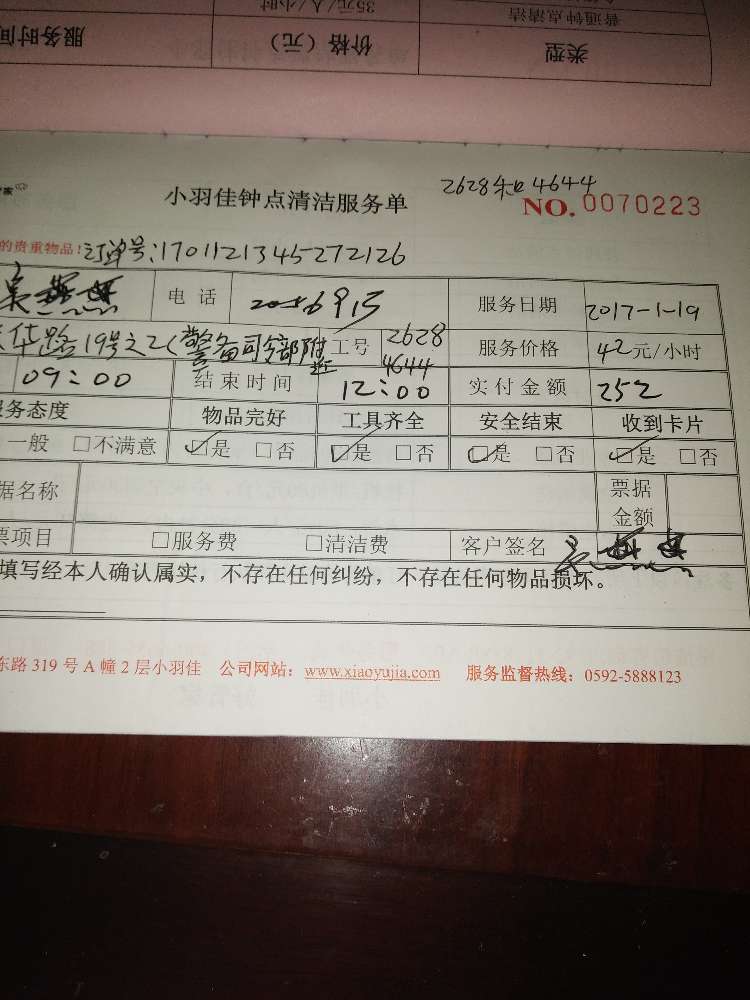 35元/人/小时
普通钟点清洁
类型 价格（元） 服务时间
家
2628和4644
小羽佳钟点清洁服务单 NO. 0070223
的贵重物品：订单号：170112134527 2126
吴 电话 服务日期 2017-1-19
华路19号之2（警备司令部附近 工号 2628 4644 服务价格 42元/小时
09：00 结束时间 12：00 实付金额 252
务态度 物品完好 工具齐全 安全结束 收到卡片
一般 □不满意 ☑是 □否 ☑是 □否 ☑是 □否 ☑是 □否
据名称 票据金额
票项目 □服务费 □清洁费 客户签名 吴
填写经本人确认属实，不存在任何纠纷，不存在任何物品损坏。
东路 319 号 A 幢 2 层小羽佳 公司网站：www.xiaoyujia.com 服务监督热线：0592-5888123